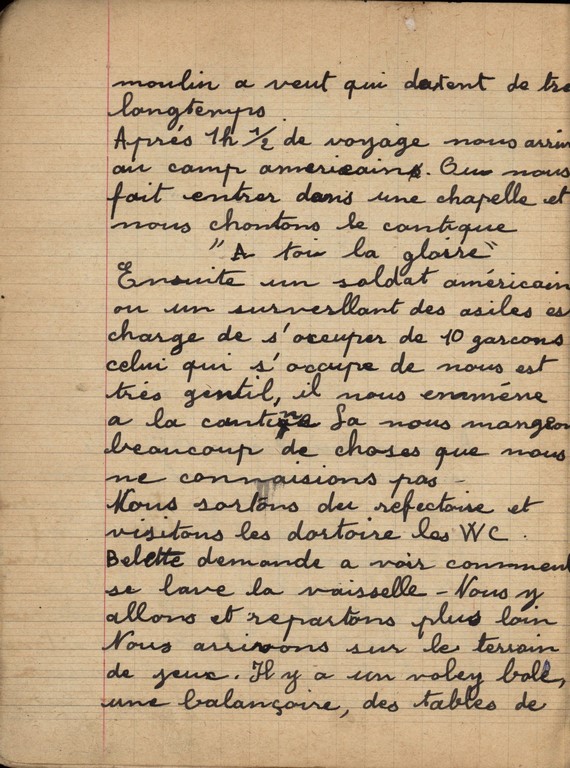 moulin a veut qui datent de tre
longtemps
Aprés 1h 1/2 de voyage nous arriv
au camp americain. On nous
fait entrer dans une chapelle et
nous chontons le cantique
"A toi la gloire"
Ensuite un soldat américain
ou un surverllant des asiles es
charge de s'occuper de 10 garcons
celui qui s'occupe de nous est
trés gentil, il nous enméne
a la cantine La nous mangeon
beaucoup de choses que nous
ne connaisions pas -
Nous sortons du refectoire et
visitons les dortoire les WC.
Belette demande a voir comment
se lave la vaisselle - Nous y
allons et repartons plus loin
Nous arrivons sur le terrain
de jeux. Il y a un voley bole,
une balançoire, des tables de